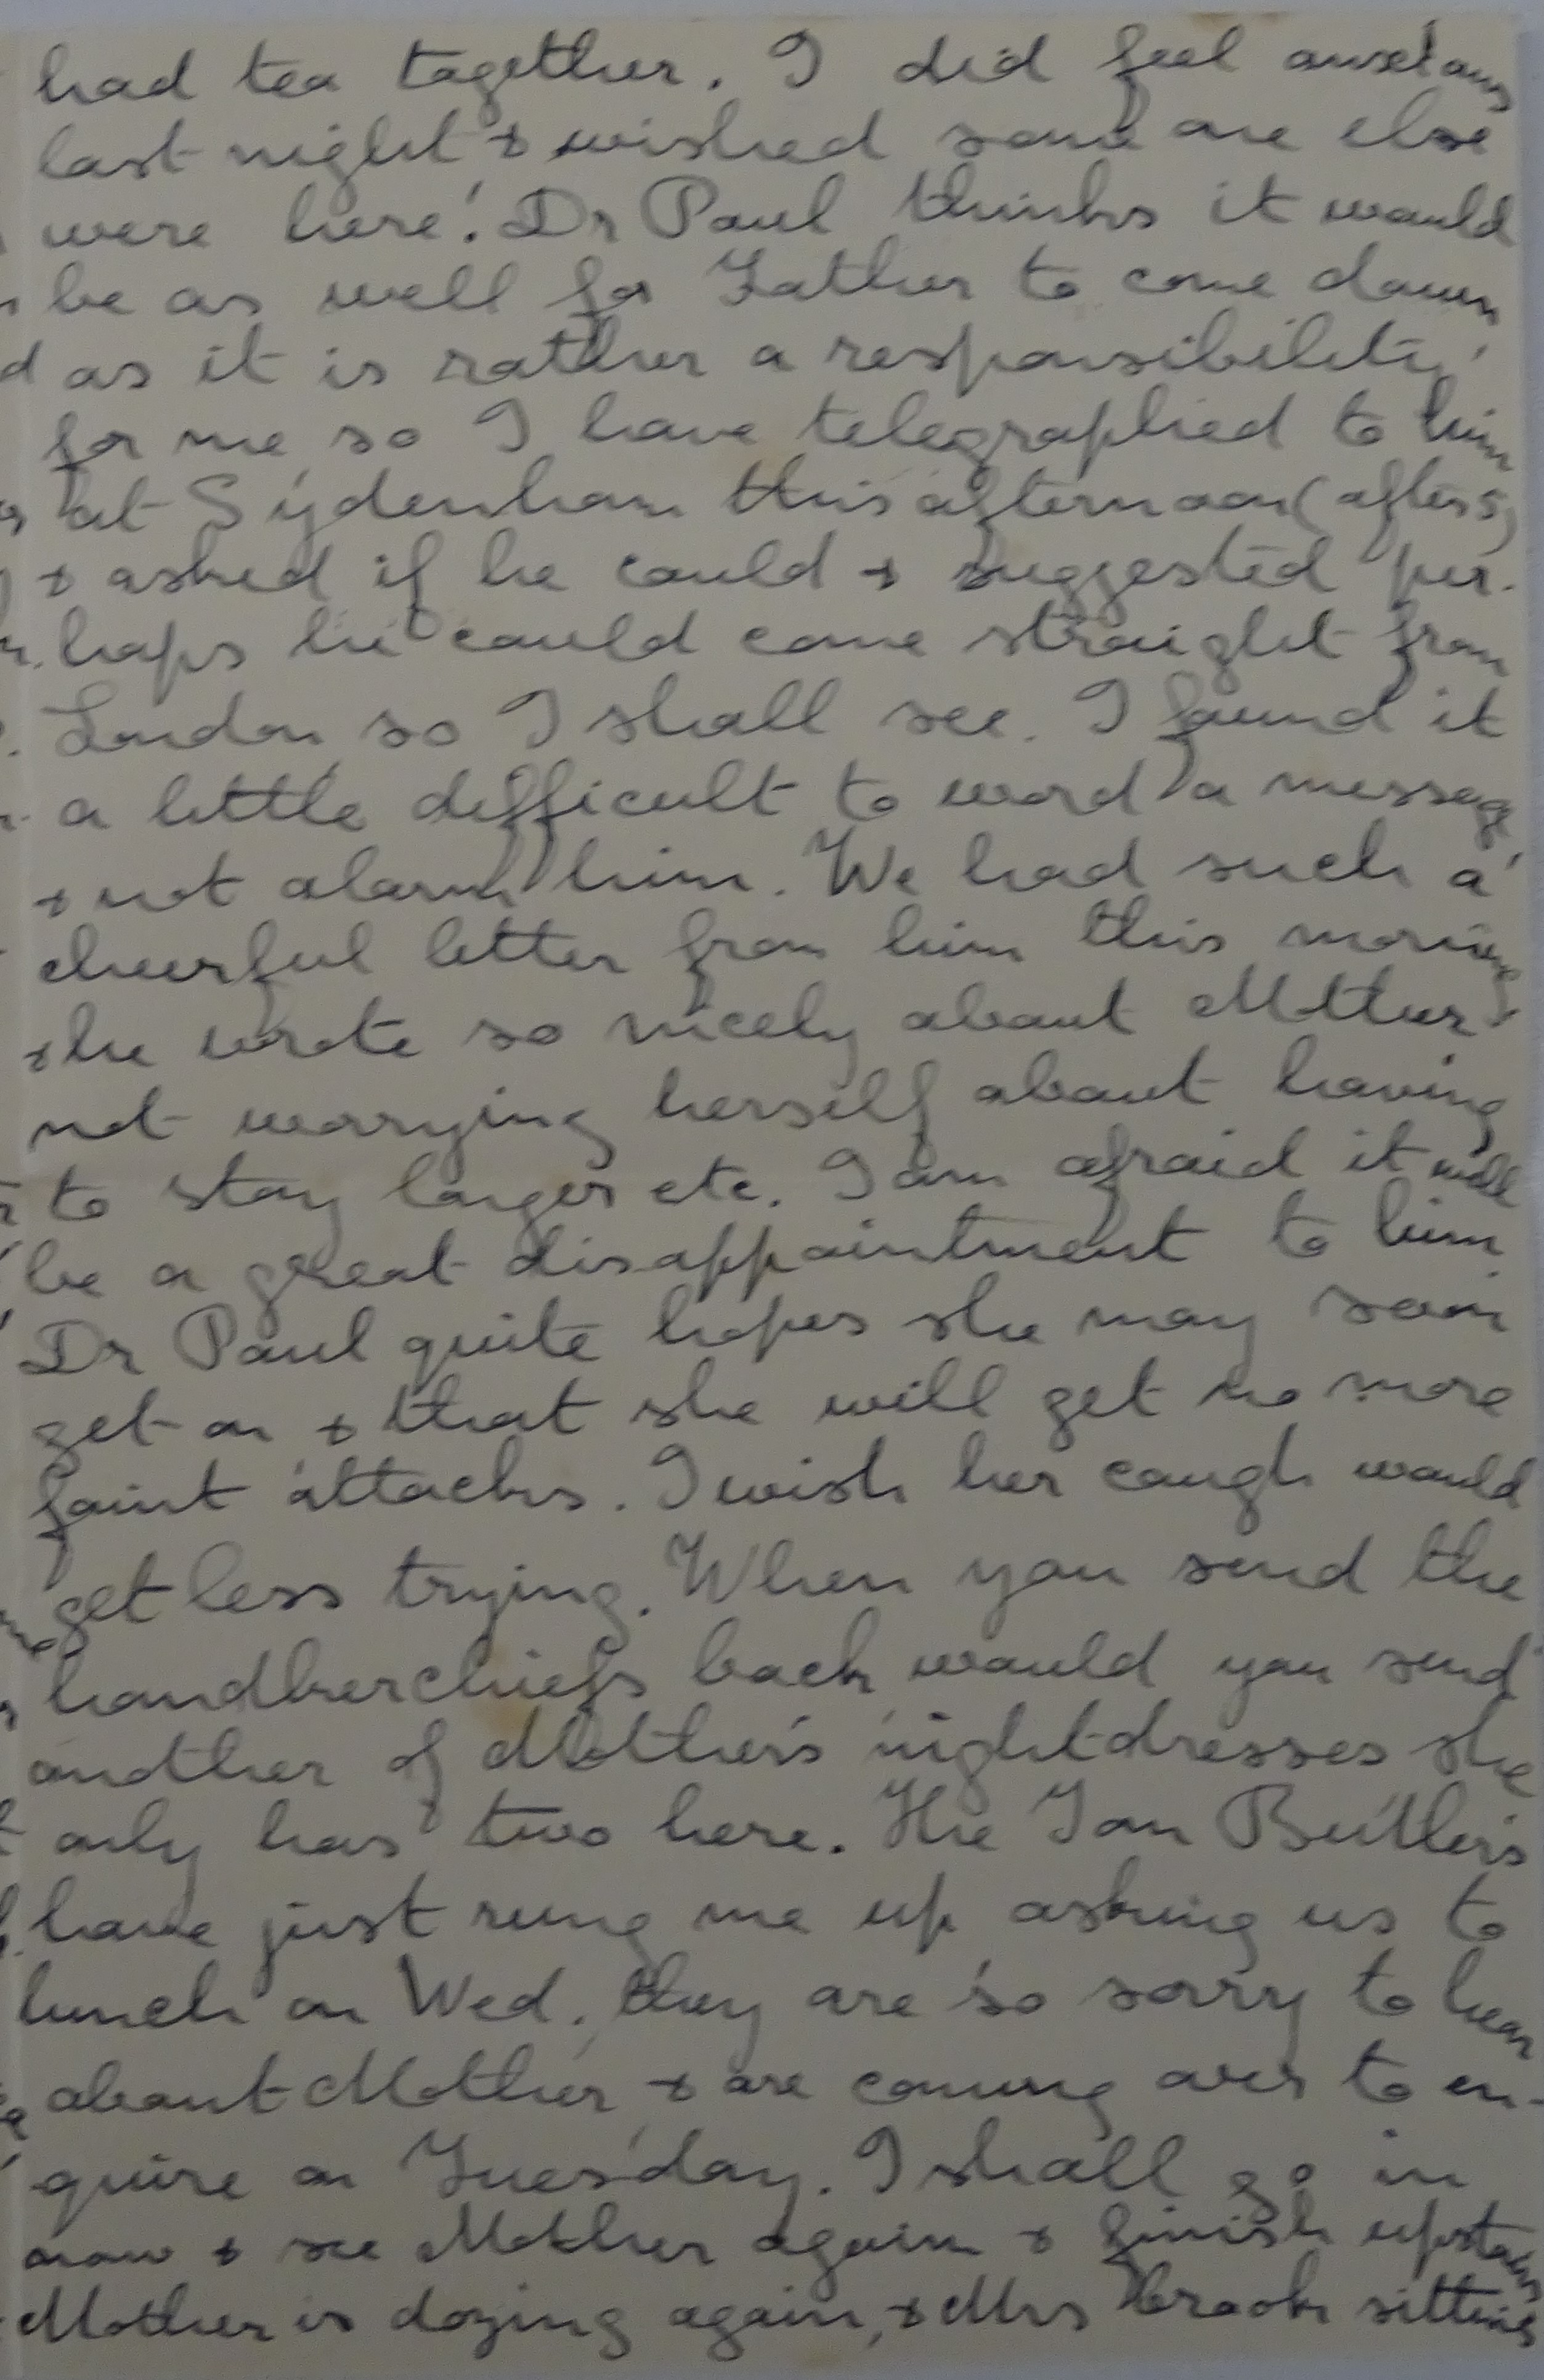 had tea together. I did feel anxious
last night & wished some one else
were here! Dr Paul thinks it would
be as well for Father to come down
as it is rather a responsibility
for me so I have telegraphed to him
at Sydenham this afternoon (after 5)
& asked if he could & suggested per-
haps he could come straight from
London so I shall see. I found it
a little difficult to word a message
& not alarm him. We had such a
cheerful letter from him this morning
& he wrote so nicely about Mother
not worrying herself about having
to stay longer etc. I am afraid it will
be a great disappointment to him
Dr Paul quite hopes she may soon
get on & that she will get no more
faint attacks. I wish her cough would
get less trying. When you send the
handkerchiefs back would you send
another of Mother's nightdresses she
only has two here. The Ian Butler's
have just rung me up asking us to
lunch on Wed. they are so sorry to hear
about Mother & are coming over to en-
quire on Tuesday. I shall go in
now & see Mother again & finish upstairs
Mother is dozing again, & Mrs Brook sitting